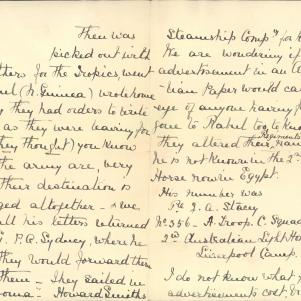 Then was
picked out with
thers for the Tropics, went
ul (N. Guinea) wrote home
y they had orders to write
as they were leaving for
they thought) you know
the army are very
their destination is
ged altogether - & we
all his letters returned
G.P.O. Sydney, where he
they would forward them
them - They sailed in
ooma - Howard Smiths
Steamship Compy for R
We are wondering if
advertisement in an Au
-lian Paper would ca
eye of anyone having
gone to Rabul too, to know
they altered their Regiment
he is not known in the 2nd
Horse now in Egypt.
His number was
Pte J. A. Stacey
No 356 - A. Troop. C. Squad
2nd Australian Light Ho
Liverpool Camp.
I do not know what y
advertisements cost &